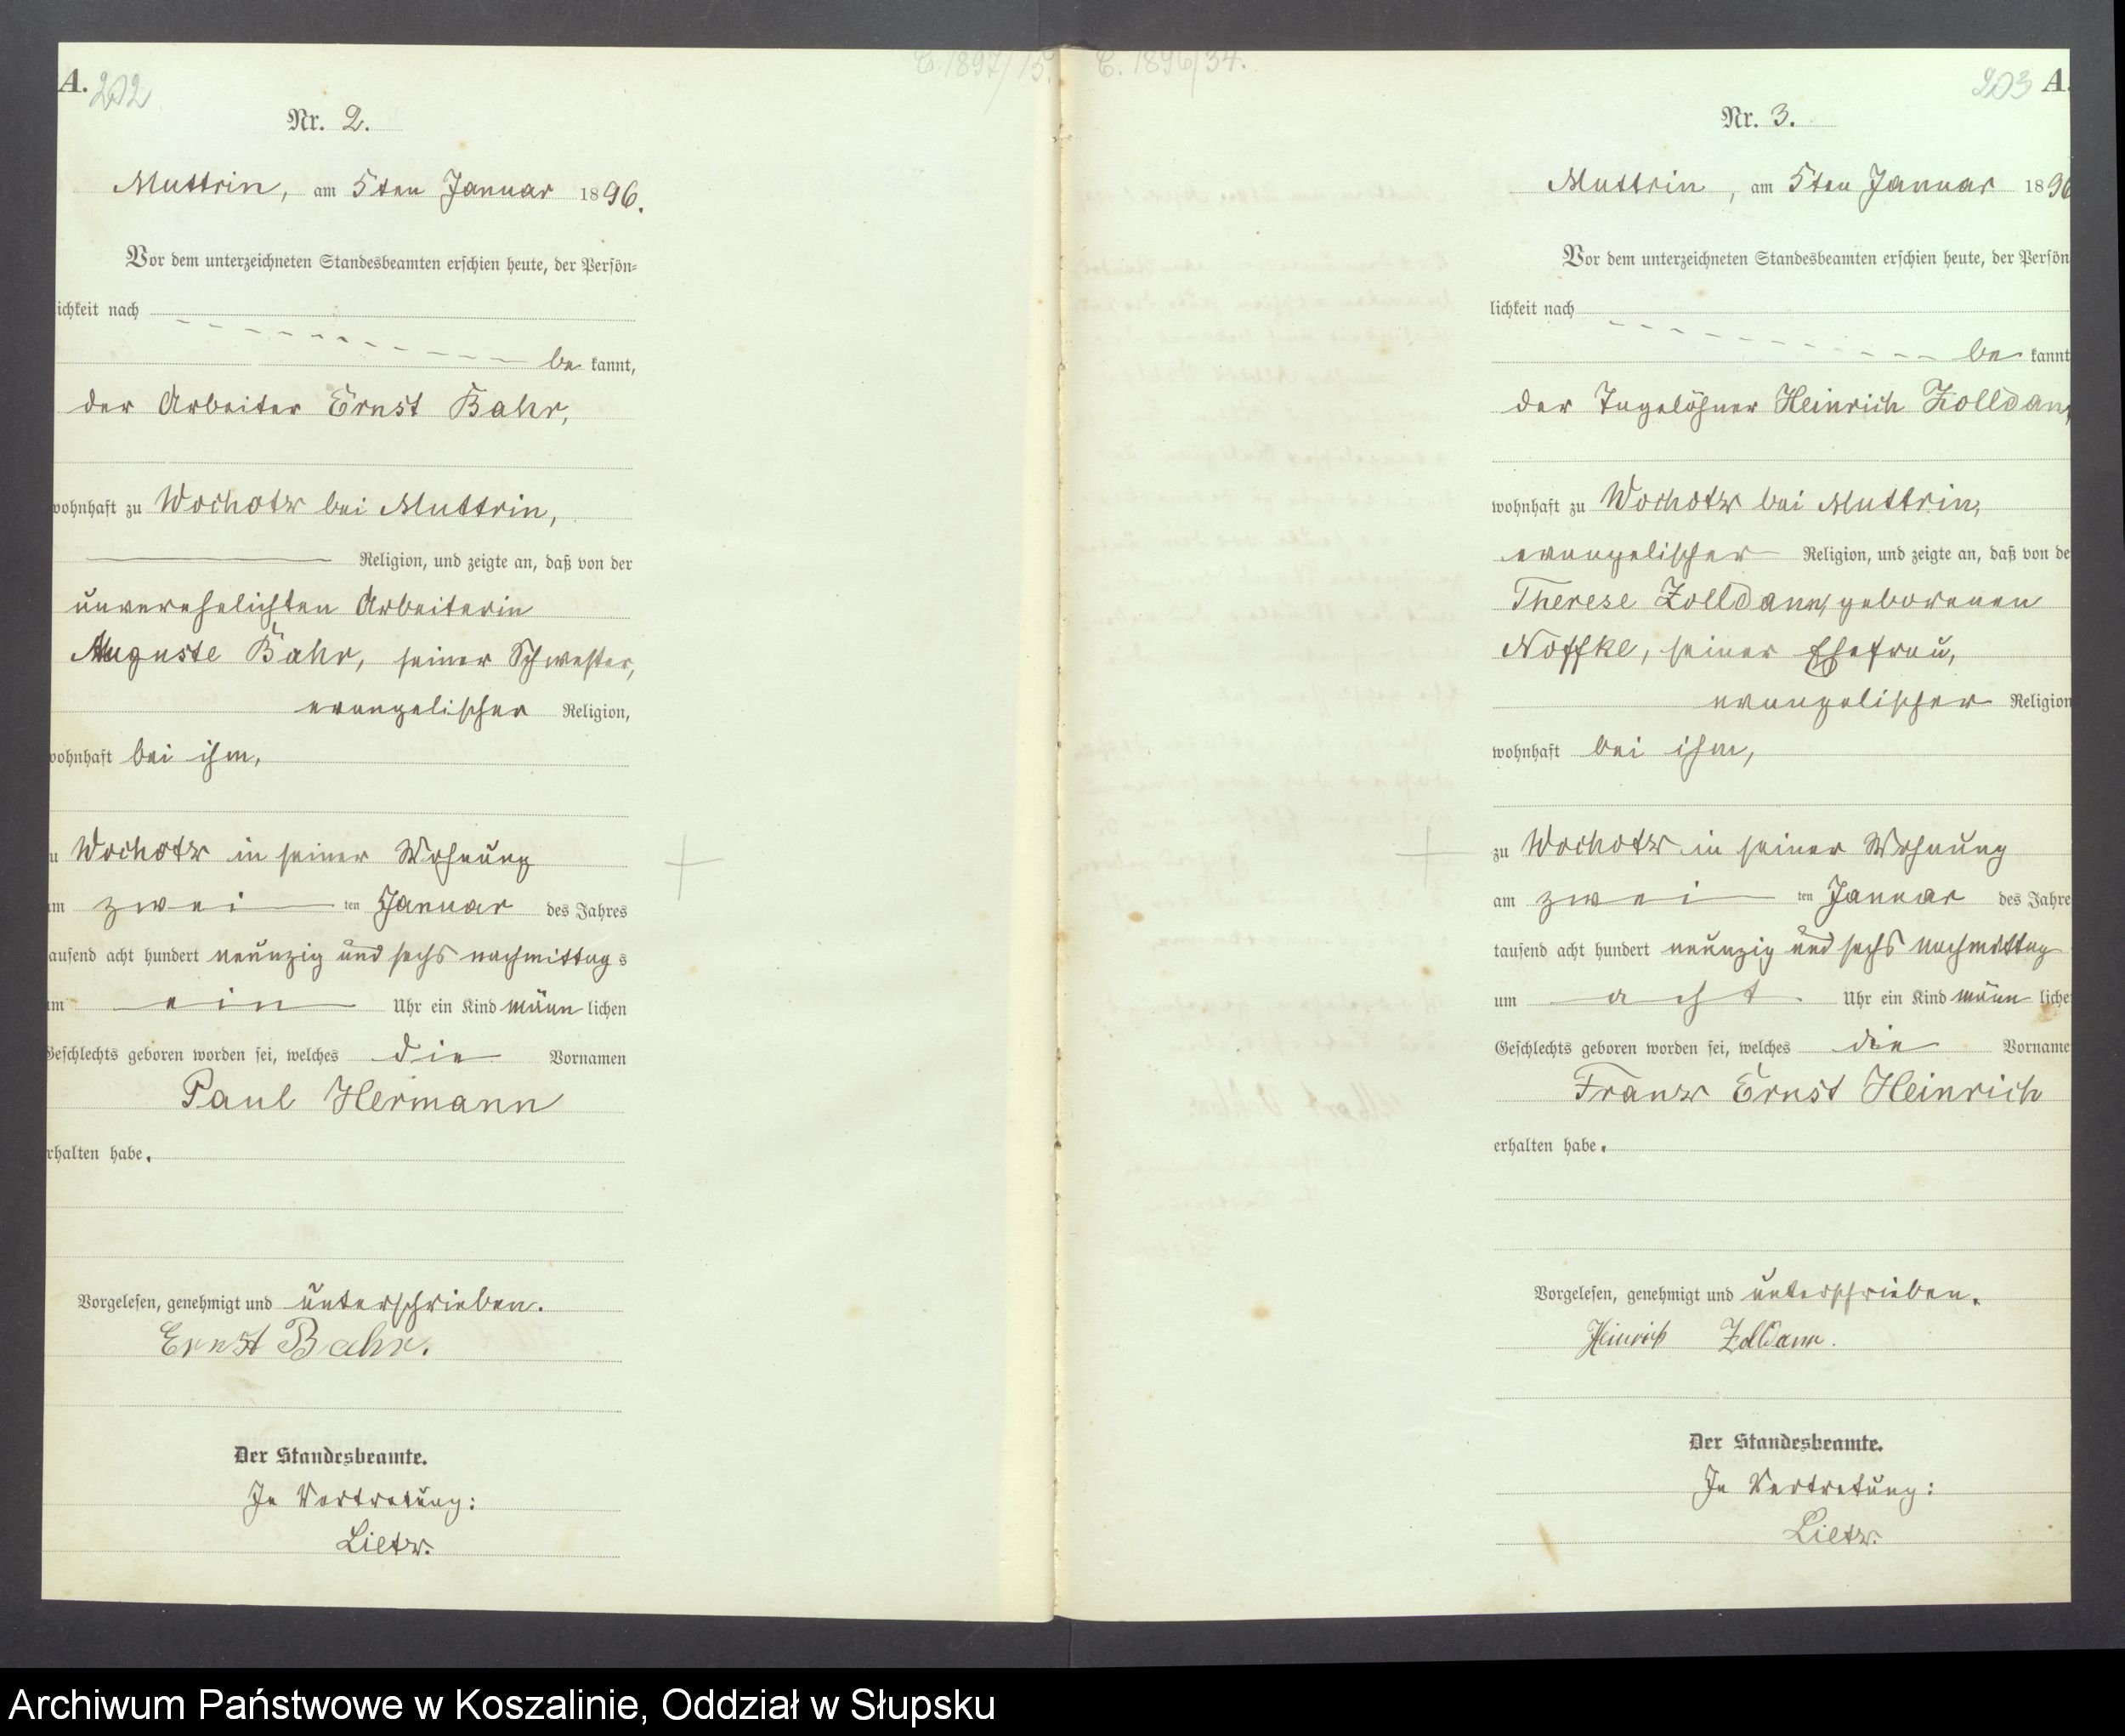 C. 1897/15.
A. 202
Nr. 2.
Muttrin, am 5ten Januar 1896.
Vor dem unterzeichneten Standesbeamten erschien heute, der Persön-
ichkeit nach
be kannt,
der Arbeiter Ernst Bahr,
wohnhaft zu Wochotz bei Muttrin,
Religion, und zeigte an, daß von der
unverehelichten Arbeiterin
Auguste Bahr, seiner Schwester,
evangelischer Religion,
wohnhaft bei ihm,
u Wochotz in seiner Wohnung
am zwei ten Januar des Jahres
tausend acht hundert neunzig und sechs nachmittag s
um ein Uhr ein Kind männ lichen
Geschlechts geboren worden sei, welches die Vornamen
Paul Hermann
rhalten habe.
Vorgelesen, genehmigt und unterschrieben.
Ernst Bahr.
Der Standesbeamte.
In Vertretung:
Lietz.
C. 1896/34.
203 A.
Nr. 3.
Muttrin, am 5ten Januar 1896
Vor dem unterzeichneten Standesbeamten erschien heute, der Persön
lichkeit nach
be kannt
der Tagelöhner Heinrich Zolldan,
wohnhaft zu Wochotz bei Muttrin,
evangelischer Religion, und zeigte an, daß von de
Therese Zolldann, geborenen
Noffke, seiner Ehefrau,
evangelischer Religion
wohnhaft bei ihm,
zu Wochotz in seiner Wohnung
am zwei ten Januar des Jahre
tausend acht hundert neunzig und sechs nachmittag
um acht Uhr ein Kind männ liche
Geschlechts geboren worden sei, welches die Vorname
Franz Ernst Heinrich
erhalten habe.
Vorgelesen, genehmigt und unterschrieben.
Heinrich Zolldann.
Der Standesbeamte.
In Vertretung:
Lietz.
Archiwum Państwowe w Koszalinie, Oddział w Słupsku